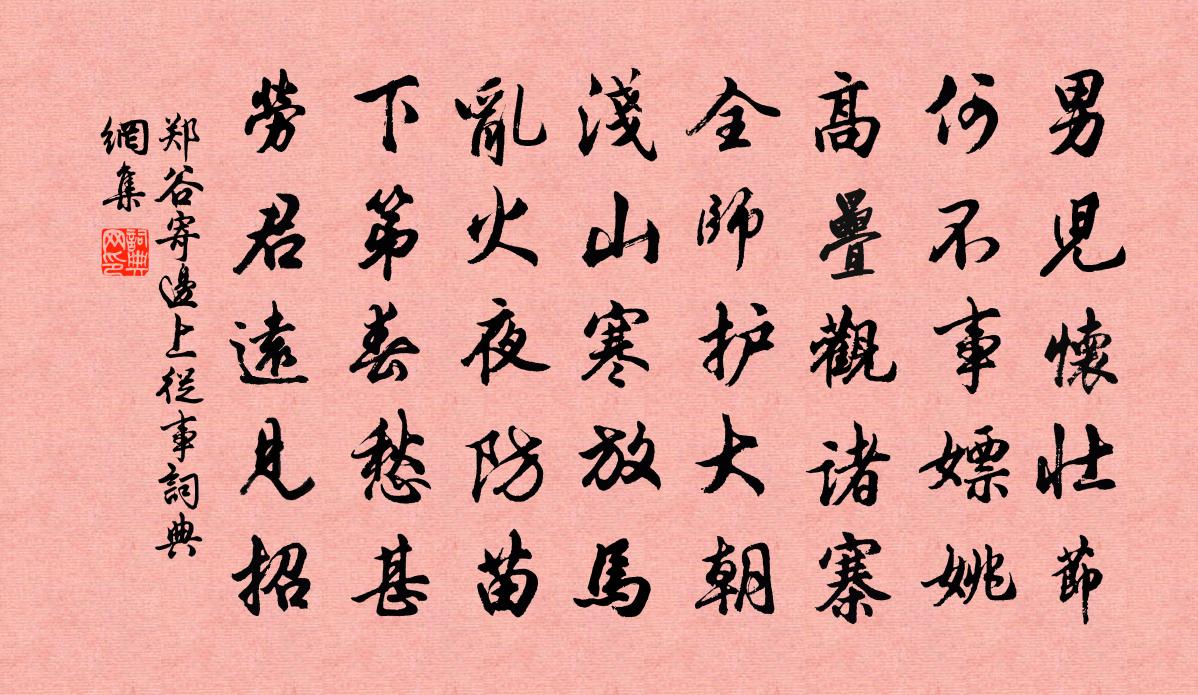 男児懷壮節
何不事嫖姚
高疊觀諸寨
全師护大朝
淺山寒放馬
亂火夜防苗
下第春愁甚
勞君遠見招
郑谷寄邊上從事詞典
網集
詞典
网印